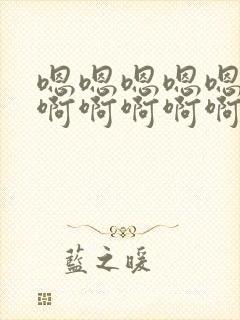 嗯嗯嗯嗯嗯
啊啊啊啊啊
藍之暖